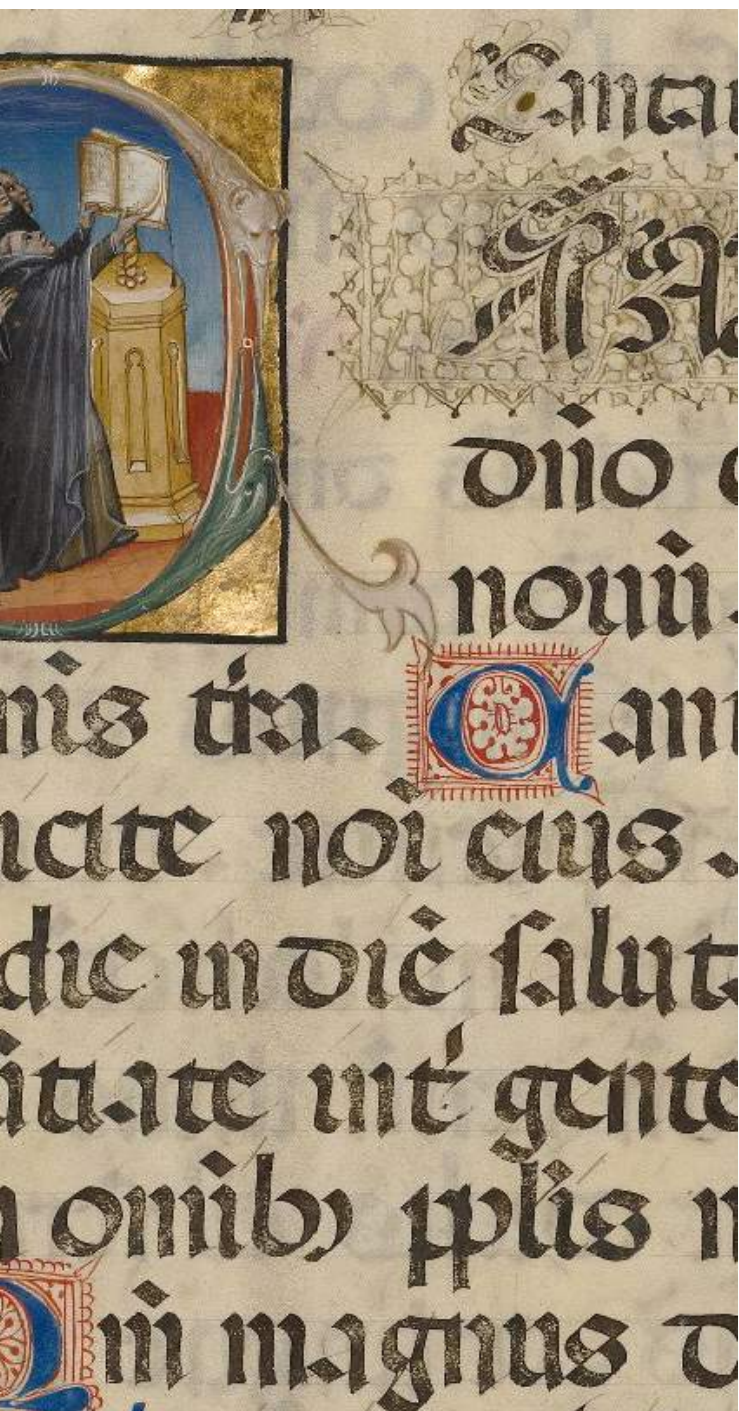 Canta
dño c
nouũ.
nis t̃ra. Cant
icite nõi eius.
die in diẽ salut
ũtiate int̃ gente
omĩbꝫ pplis m
Qm̃ magnus d